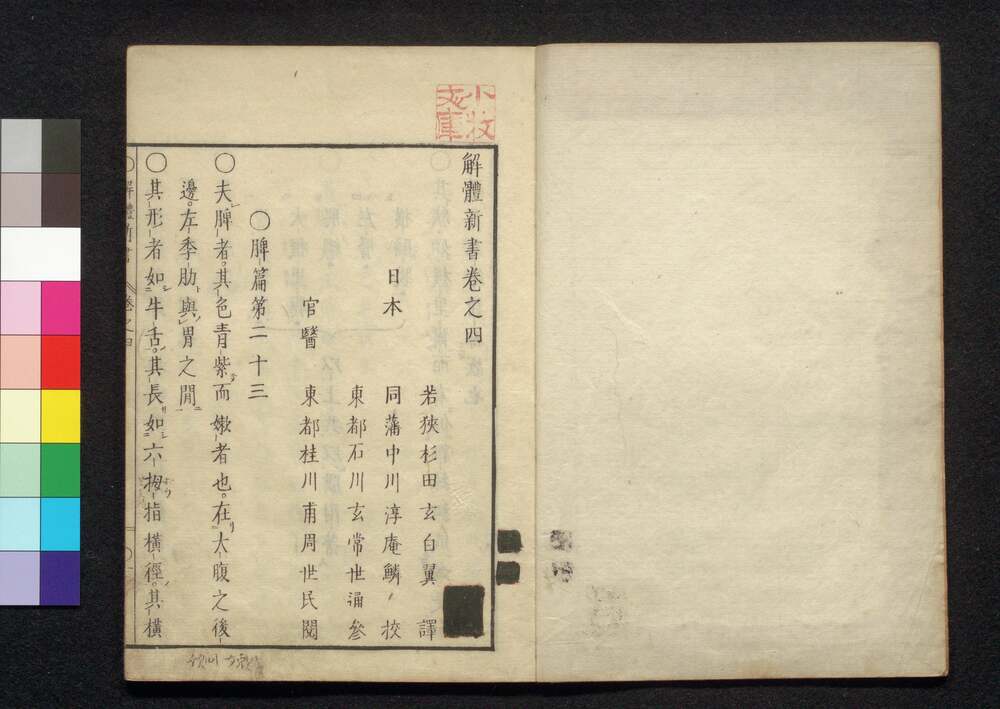 小牧
文庫
解體新書卷之四
若狹杉田玄白翼　譯
日本　同藩中川淳庵鱗　校
東都石川玄常世通參
官醫　東都桂川甫周世民閱
〇脾篇第二十三
〇夫脾者。其色青紫而嫩者也。在大腹之後
邊。左季肋與胃之閒
〇其形者如牛舌。其長如六拇指橫徑。其橫
〇解體新書　卷之四